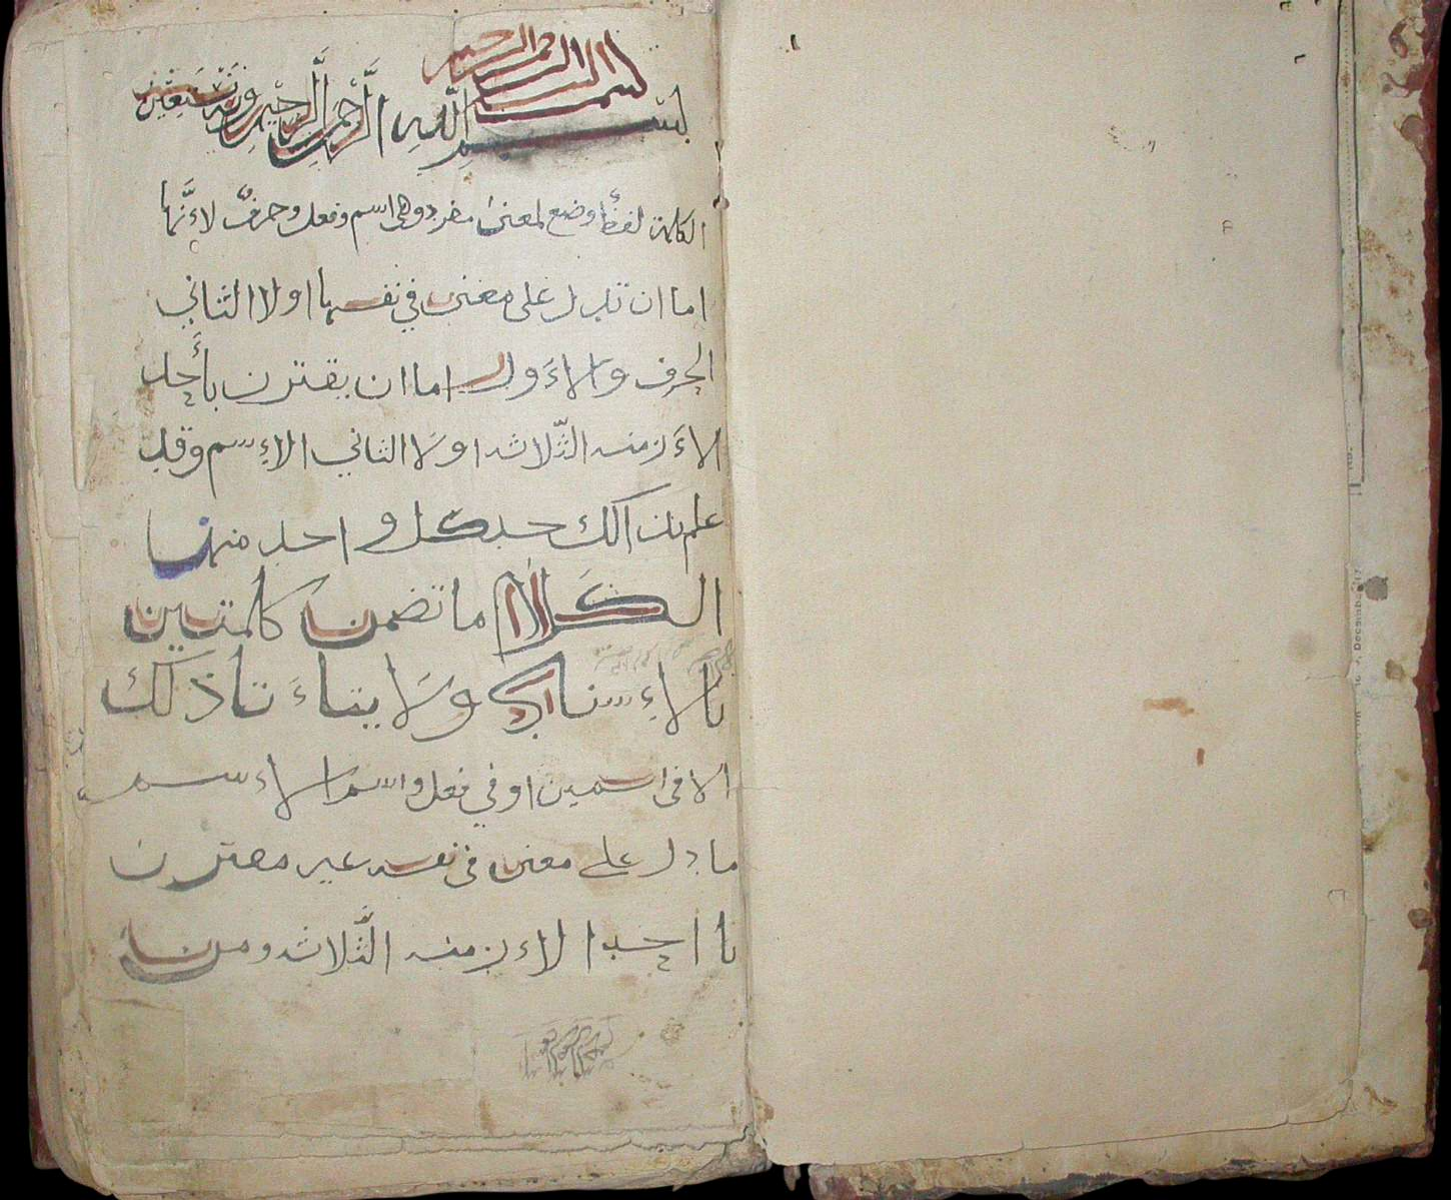 بسم الله الرحمن الرحيم
بِسْمِ اللَّهِ الرَّحْمَنِ الرَّحِيمِ وَبِهِ نَسْتَعِين
الكلمة لفظٌ وضع لمعنىً مفرد وهى اسم وفعل وحرفٌ لاءَنَّها
اما ان تدل على معنى في نفسها او لا الثاني
الحرف وَالاءَول اما ان يقترن بأَحد
الاءَزمنه الثّلاثه اوَلا الثاني الاءِسم وقد
علم بذالك حد كل واحد منها
الكَلَام ما تضمن كلمتين
بالاءِسناد وَلا يتاءَتا ذلك
الا فى اسمين او في فعل واسم الاءسم
ما دل على معنى فى نفسه غير مقترن
با احد الاءزمنه الثَّلاثه ومن